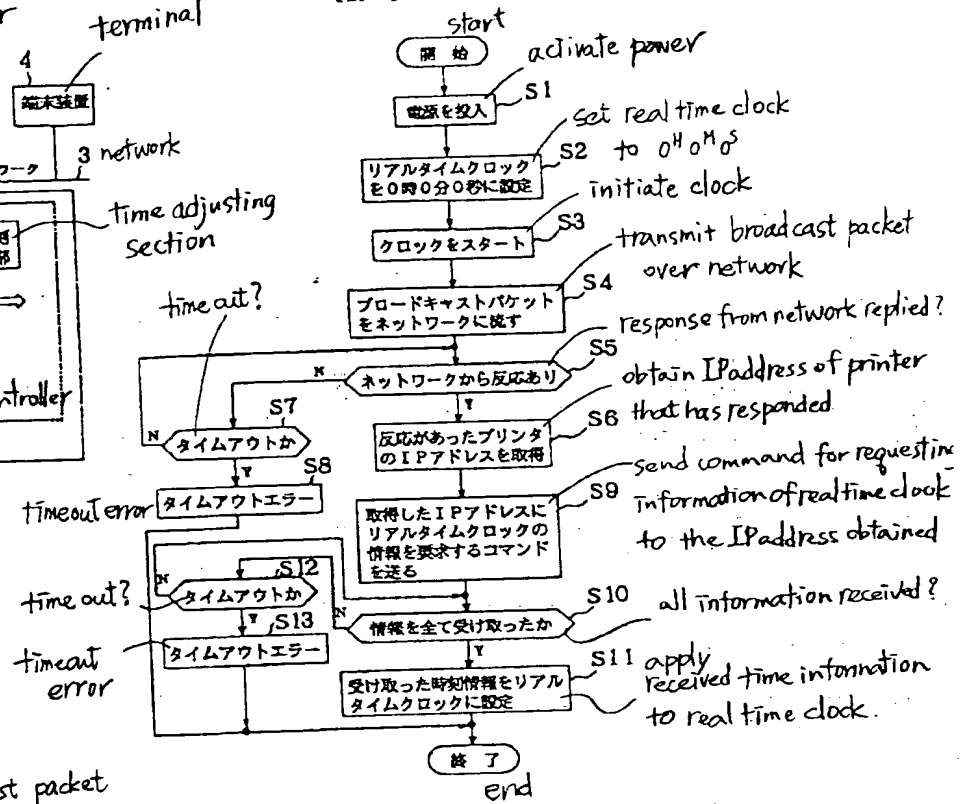 terminal
4
端末装置
ワーク
3 network
time adjusting
section
ntroller
start
開始
activate power
電源を投入
S1
set real time clock
to 0H 0M 0S
リアルタイムクロック
を0時0分0秒に設定
S2
initiate clock
クロックをスタート
S3
transmit broadcast packet
over network
ブロードキャストパケット
をネットワークに流す
S4
time out?
response from network replied?
ネットワークから反応あり
S5
N
Y
obtain IP address of printer
that has responded
反応があったプリンタ
のIPアドレスを取得
S6
S7
タイムアウトか
N
Y
S8
timeout error
タイムアウトエラー
send command for requesting
information of real time clock
to the IP address obtained
S9
取得したIPアドレスに
リアルタイムクロックの
情報を要求するコマンド
を送る
S12
time out?
タイムアウトか
N
Y
S10
all information received?
情報を全て受け取ったか
N
Y
S13
timeout
error
タイムアウトエラー
S11
apply
received time information
to real time clock.
受け取った時刻情報をリアル
タイムクロックに設定
終了
end
st packet